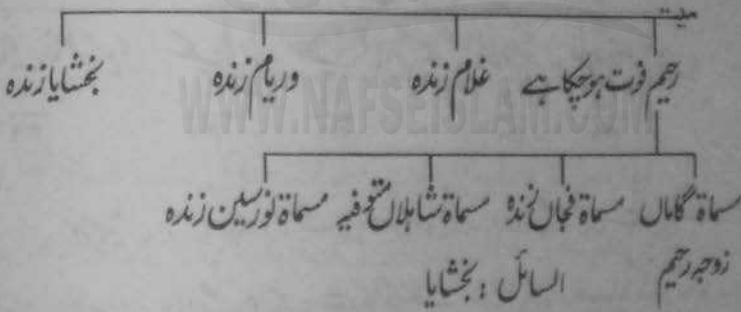 میت
رحیم فوت ہوچکا ہے غلام زندہ وریام زندہ بخشایا زندہ
WWW.NAFSEISLAM.COM
مسماۃ گاماں مسماۃ فجاں زندہ مسماۃ شاہلاں متوفیہ مسماۃ نورسین زندہ
زوجہ رحیم السائل : بخشایا